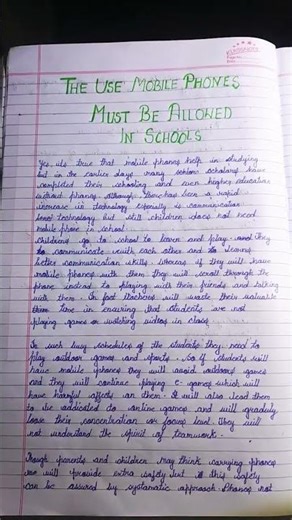 THE USE MOBILE PHONES
MUST BE ALLOWED
IN SCHOOLS
Yes, its true that mobile phones help in studying
but in the earlier days many senior scholars have
completed their schooling and even higher education
without phones. Although there has been a rapid
increase in technology especially is communication
level technology but still children does not need
mobile phone in school.
Childrens go to school to learn and play. And they
to communicate with each other and to learn
better communication skills. Whereas if they will have
mobile phones with them they will scroll through the
phone instead to playing with their friends and talking
with them. In fact teachers will waste their valuable
time in ensuring that students are not
playing games or watching videos in class.
In such busy schedules of the students they need to
play outdoor games and sports. So if students will
have mobile phones they will avoid outdoor games
and they will continue playing e-games which will
have harmful affects on them. It will also lead them
to be addicted to online games and will gradully
loose their concentration or focus level. They will
not understand the spirit of teamwork.
Though parents and children may think carrying phones
will provide extra safety but this safety
can be assured by systamatic approach. Phones not